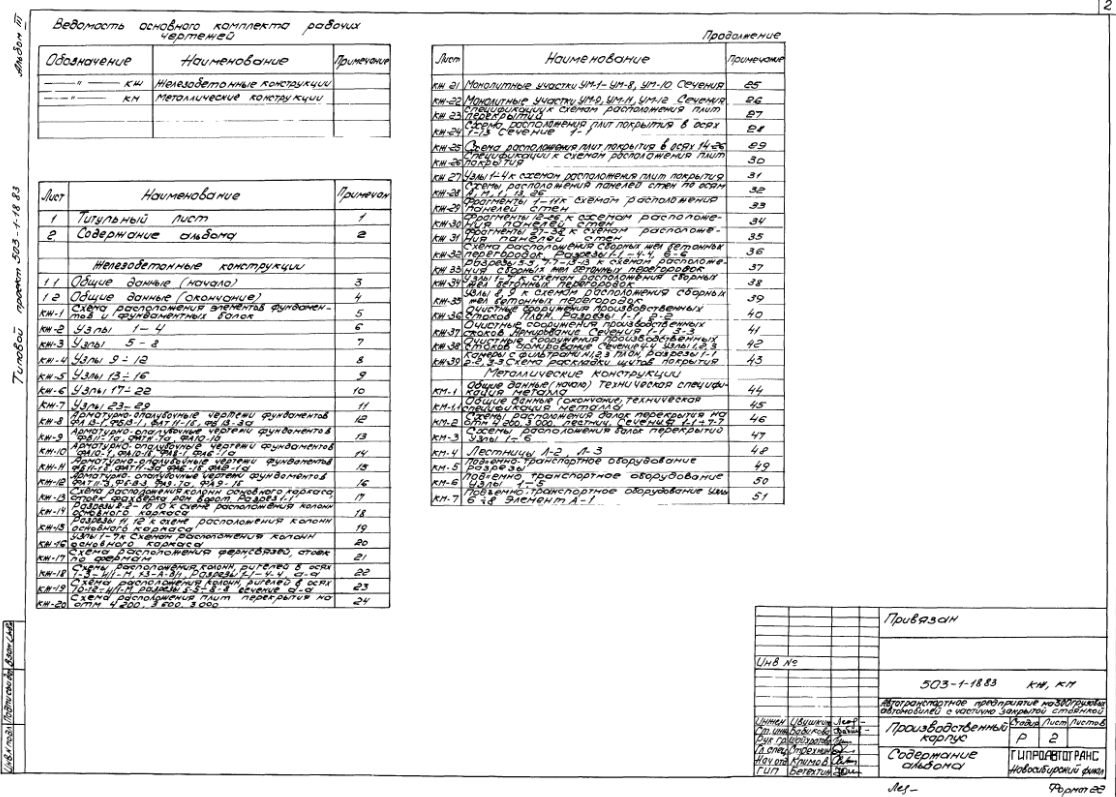 2
Альбом III
Типовой проект 503-1-18 83
Ведомость основного комплекта рабочих
чертежей
Обозначение Наименование Примечание
—— " —— КЖ Железобетонные конструкции
—— " —— КМ Металлические конструкции
Лист Наименование Примечан
1 Титульный лист 1
2 Содержание альбома 2
Железобетонные конструкции
1 1 Общие данные (начало) 3
1 2 Общие данные (окончание) 4
КЖ-1 Схема расположения элементов фундамен-
тов и фундаментных балок 5
КЖ-2 Узлы 1-4 6
КЖ-3 Узлы 5-8 7
КЖ-4 Узлы 9÷12 8
КЖ-5 Узлы 13÷16 9
КЖ-6 Узлы 17÷22 10
КЖ-7 Узлы 23-29 11
КЖ-8 Арматурно-опалубочные чертежи фундаментов 12
КЖ-9 Арматурно-опалубочные чертежи фундаментов 13
КЖ-10 Арматурно-опалубочные чертежи фундаментов 14
КЖ-11 Арматурно-опалубочные чертежи фундаментов 15
КЖ-12 Арматурно-опалубочные чертежи фундаментов 16
КЖ-13 Схема расположения колонн основного каркаса
стоек фахверка рам ворот Разрез 1-1 17
КЖ-14 Разрезы 2-2÷10 10 к схеме расположения колонн
основного каркаса 18
КЖ-15 Разрезы 11, 12 к схеме расположения колонн
основного каркаса 19
КЖ-16 Узлы 1-7 к схемам расположения колонн
основного каркаса 20
КЖ-17 Схема расположения ферм, связей, стоек
по фермам 21
КЖ-18 Схемы расположения колонн, ригелей в осях 22
КЖ-19 Схема расположения колонн, ригелей в осях 23
КЖ-20 Схема расположения плит перекрытия на
отм 4 200, 3 600, 3 000 24
Продолжение
Лист Наименование Примечание
КЖ 21 Монолитные участки УМ-1-УМ-8, УМ-10 Сечения 25
КЖ-22 Монолитные участки УМ-9, УМ-11, УМ-12 Сечения 26
КЖ 23 Спецификации к схемам расположения плит
перекрытий 27
КЖ-24 Схема расположения плит покрытия в осях
1-13 Сечение 1-1 28
КЖ-25 Схема расположения плит покрытия в осях 14-26 29
КЖ-26 Спецификации к схемам расположения плит
покрытия 30
КЖ 27 Узлы 1-4 к схемам расположения плит покрытия 31
КЖ-28 Схемы расположения панелей стен по осям
А, М, 1, 13, 26 32
КЖ-29 Фрагменты 1-11 к схемам расположения
панелей стен 33
КЖ-30 Фрагменты 12-26 к схемам расположе-
ния панелей стен 34
КЖ 31 Фрагменты 27-32 к схемам расположе-
ния панелей стен 35
КЖ-32 Схема расположения сборных жел бетонных
перегородок. Разрезы 1-1-4-4, 6-6 36
КЖ 33 Разрезы 5-5, 7-7-13-13 к схемам расположе-
ния сборных жел бетонных перегородок 37
КЖ-34 Узлы 1-7 к схемам расположения сборных
жел бетонных перегородок 38
КЖ-35 Узлы 8, 9 к схемам расположения сборных
жел бетонных перегородок 39
КЖ-36 Очистные сооружения производственных
стоков План. Разрезы 1-1, 2-2 40
КЖ-37 Очистные сооружения производственных
стоков Армирование Сечения 1-1 3-3 41
КЖ-38 Очистные сооружения производственных
стоков Армирование Сечения 4-4 Узлы 1, 2, 3 42
КЖ-39 Камеры с фильтрами 1,2,3 План, разрезы 1-1
2-2, 3-3 Схема раскладки щитов покрытия 43
Металлические конструкции
КМ-1 Общие данные (начало) Техническая специфи-
кация металла 44
КМ-1.1 Общие данные (окончание) техническая
спецификация металла 45
КМ-2 Схемы расположения балок перекрытия на
отм 4 200, 3 000, лестниц, Сечения 1-1÷7-7 46
КМ-3 Схемы расположения балок перекрытий
Узлы 1÷6 47
КМ-4 Лестницы Л-2, Л-3 48
КМ-5 Подъемно-транспортное оборудование
Разрезы 49
КМ-6 Подъемно транспортное оборудование
Узлы 1-5 50
КМ-7 Подъемно-транспортное оборудование Узлы
6÷8 Элемент А-1 51
Привязан
Инв №
503-1-18 83 КЖ, КМ
Автотранспортное предприятие на 300 грузовых
автомобилей с частично закрытой стоянкой
Производственный
корпус
Стадия Лист Листов
Р 2
Содержание
альбома
ГИПРОАВТОТРАНС
Новосибирский филиал
Рук гр
Гл спец
Нач отд Климов
ГИП
Инв.№ подл. Подпись и дата Взам инв.№
Формат 22